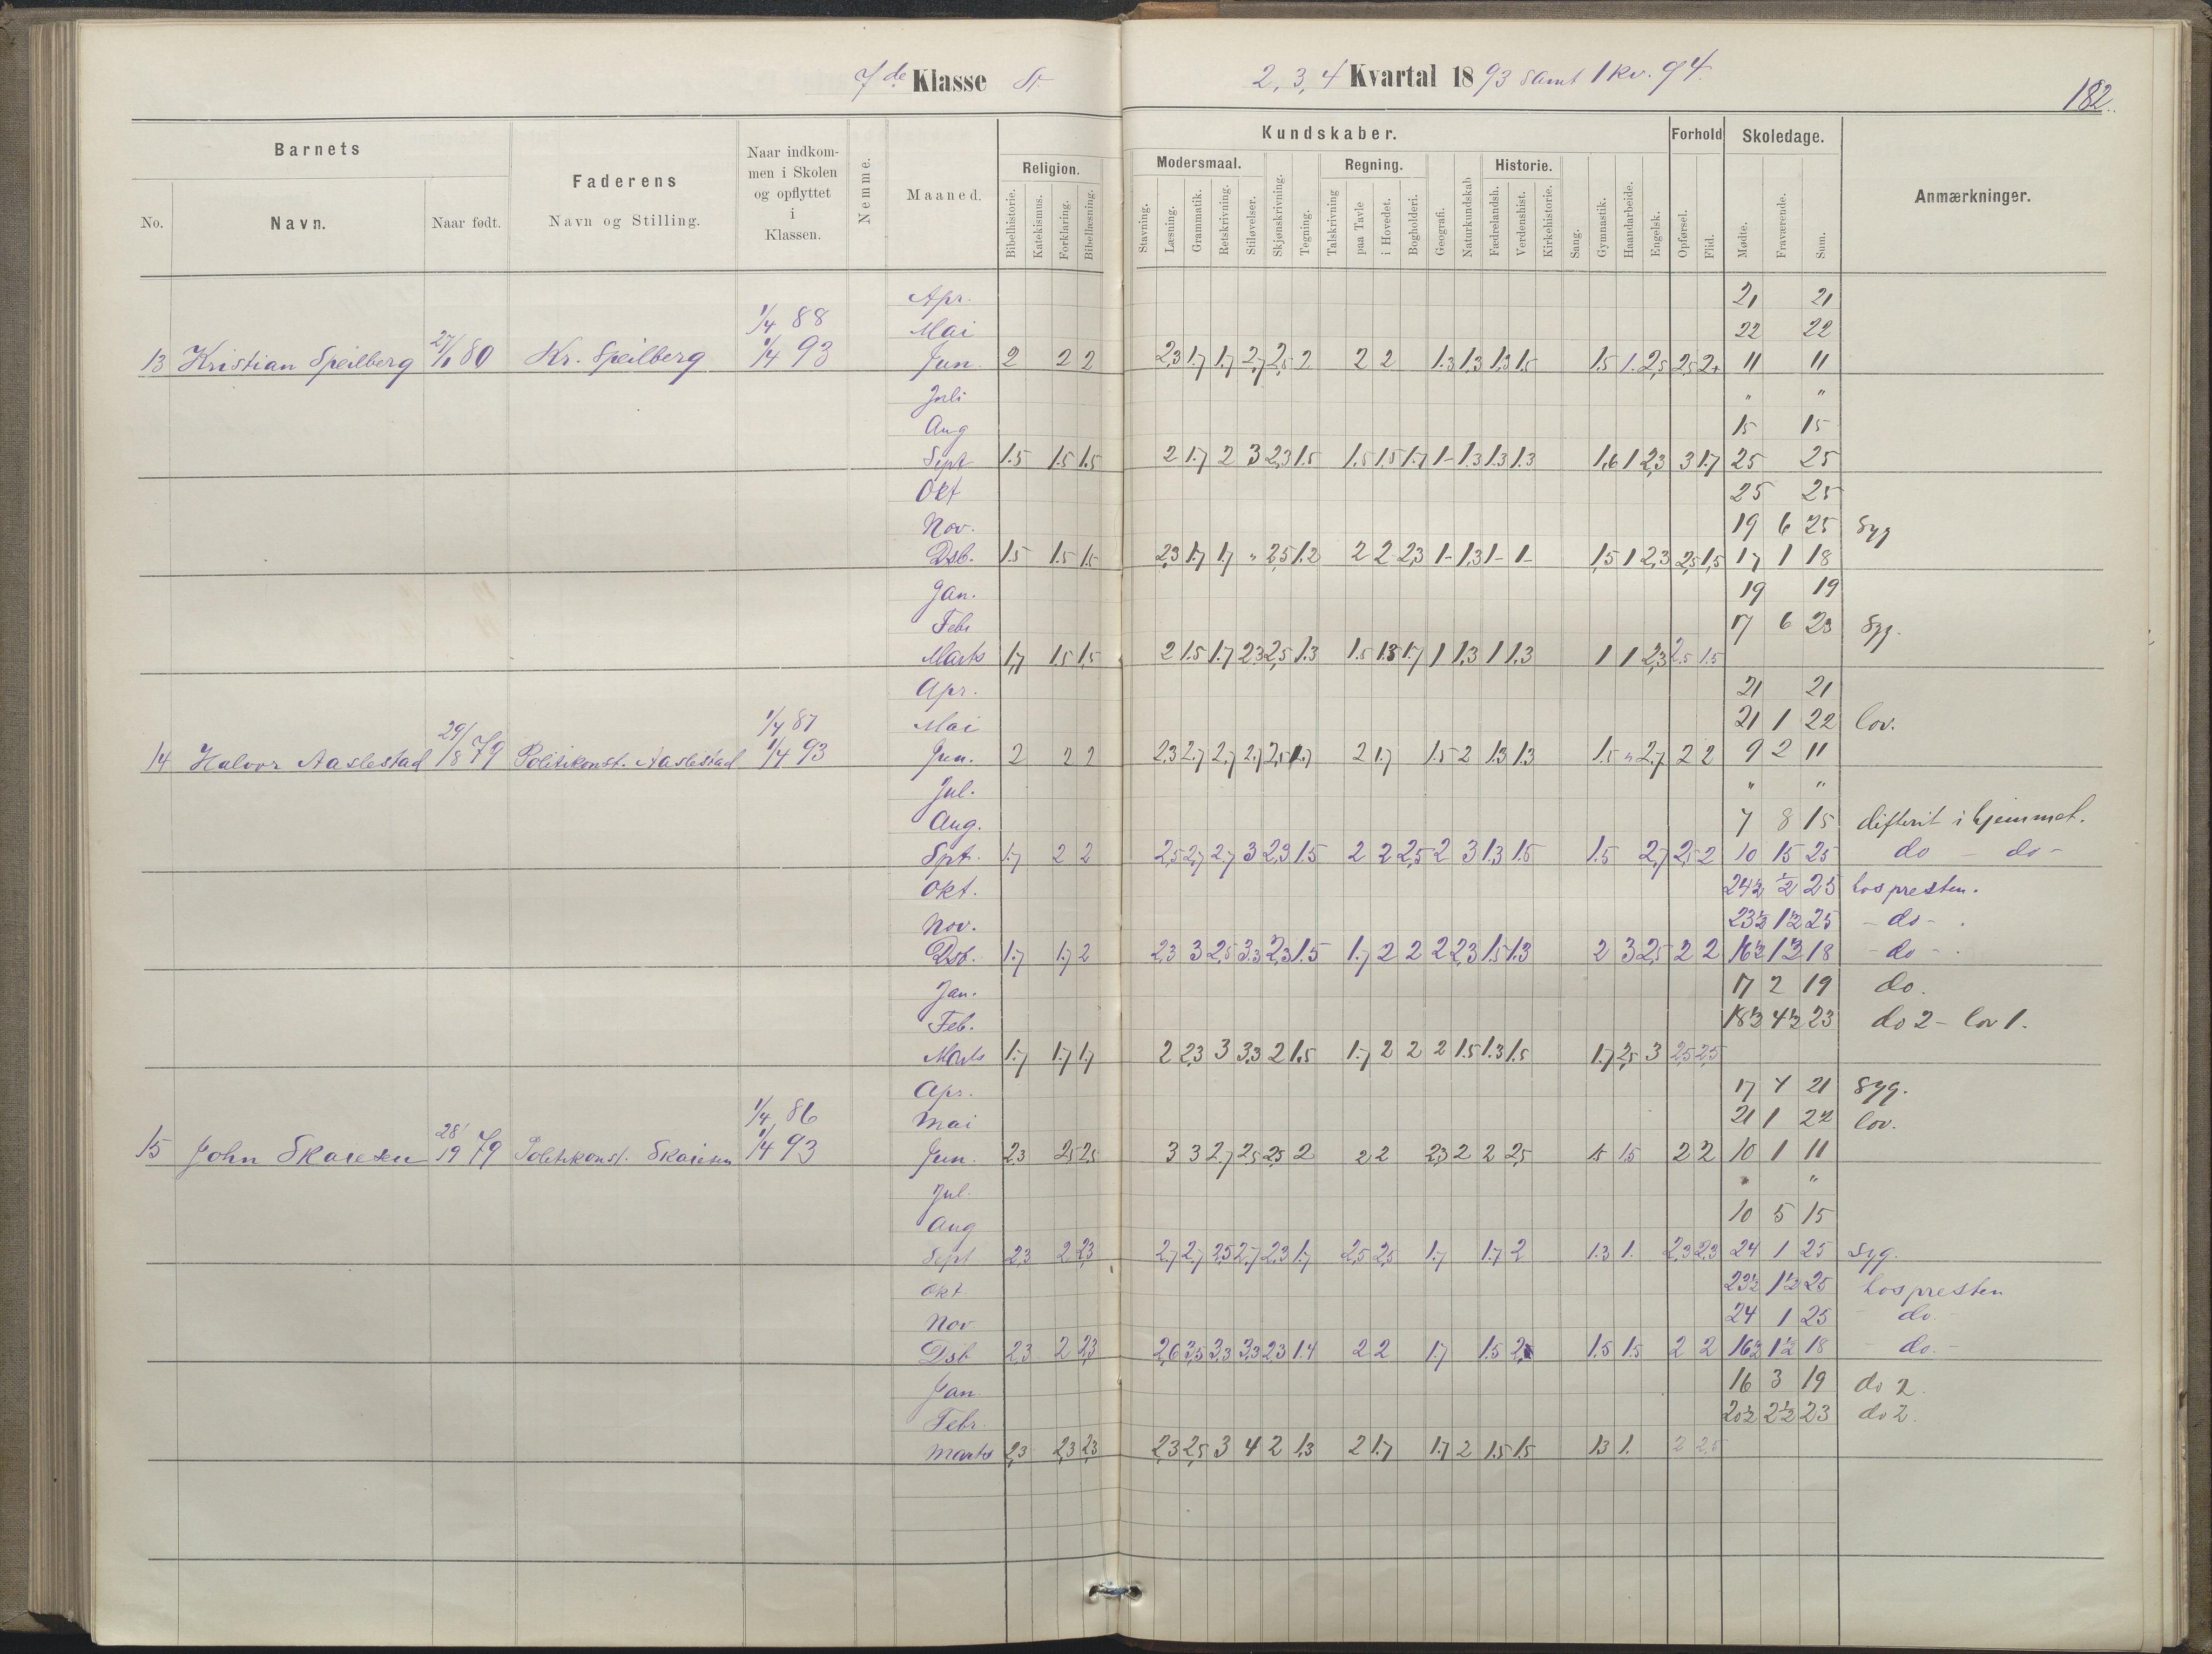 7de Klasse St.
2, 3, 4 Kvartal 1893 samt 1 kv. 94.
182.
Barnets
No.
Navn.
Naar født.
Faderens
Navn og Stilling.
Naar indkom-
men i Skolen
og opflyttet
i
Klassen.
Nemme.
Maaned.
Kundskaber.
Religion.
Bibelhistorie.
Katekismus.
Forklaring.
Bibellæsning.
Modersmaal.
Stavning.
Læsning.
Grammatik.
Retskrivning.
Stiløvelser.
Skjønskrivning.
Tegning.
Regning.
Talskrivning
paa Tavle
i Hovedet.
Bogholderi.
Geografi.
Naturkundskab
Historie.
Fædrelandsh.
Verdenshist.
Kirkehistorie.
Sang.
Gymnastik.
Haandarbeide.
Engelsk.
Forhold
Opførsel.
Flid.
Skoledage.
Mødte.
Fraværende.
Sum.
Anmærkninger.
Apr. 21 21
1/4 88 Mai 22 22
13 Kristian Speilberg 27/1 80 Kr. Speilberg 1/4 93 Jun 2 2 2 2,3 1.7 1.7 2,7 2,5 2 2 2 1.3 1,3 1,3 1.5 1.5 1. 2,5 2,5 2+ 11 11
Juli " "
Aug 15 15
Sept 1.5 1.5 1.5 2 1.7 2 3 2,3 1.5 1.5 1.5 1.7 1- 1.3 1.3 1.3 1,6 1 2,3 3 1.7 25 25
Okt 25 25
Nov. 19 6 25 Syg
Dsb. 1.5 1.5 1.5 2,3 1.7 1.7 " 2,5 1.2 2 2 2,3 1- 1,3 1- 1- 1,5 1 2,3 2,5 1,5 17 1 18
Jan. 19 19
Febr 17 6 23 Syg.
Marts 1,7 1.5 1,5 2 1.5 1.7 2,3 2,5 1.3 1.5 1.3 1.7 1 1,3 1 1.3 1 1 2,3 2.5 1.5
Apr. 21 21
1/4 87 Mai 21 1 22 lov.
14 Halvor Aaslestad 29/8 79 Politikonst. Aaslestad 1/4 93 Jun. 2 2 2 2,3 2.7 2.7 2.7 2,5 1.7 2 1.7 1.5 2 1.3 1.3 1.5 " 2.7 2 2 9 2 11
Jul. " "
Aug. 7 8 15 difterit i hjemmet.
Spt. 1.7 2 2 2,5 2,7 2.7 3 2,3 1.5 2 2 2,5 2 3 1.3 1.5 1.5 2,7 2,5 2 10 15 25 do - do -
Okt. 24½ ½ 25 hos presten.
Nov. 23½ 1½ 25 - do -
Dsb. 1.7 1.7 2 2,3 3 2,5 3.3 2,3 1.5 1.7 2 2 2 2,3 1.5 1.3 2 3 2,5 2 2 16½ 1½ 18 - do -
Jan. 17 2 19 do.
Feb. 18½ 4½ 23 do 2 - lov 1.
Marts 1.7 1.7 1.7 2 2,3 3 3,3 2 1.5 1.7 2 2 2 1.5 1.3 1.5 1.7 2,5 3 2,5 2,5
Apr. 17 4 21 Syg.
1/4 86 Mai 21 1 22 lov.
15 John Skaresen 79 Politikonst. Skaresen 1/4 93 Jun. 2,3 2,5 2,5 3 3 2,7 2,5 2,5 2 2 2 2,3 2 2 2,5 1.5 1.5 2 2 10 1 11
Jul. " "
Aug 10 5 15
Sept 2,3 2 2,3 2,7 2,7 2,5 2,7 2,3 1.7 2,5 2,5 1.7 1.7 2 1.3 1. 2,3 2,3 24 1 25 Syg.
Okt 23½ 1½ 25 hos presten
Nov 24 1 25 - do. -
Dsb 2,3 2 2,3 2,6 3,5 3,3 3,3 2,3 1.4 2 2 1.7 1.5 2 1.5 1.5 2 2 16½ 1½ 18 - do. -
Jan 16 3 19 do 2.
Febr. 20½ 2½ 23 do 2.
Marts 2,3 2,3 2,3 2,3 2,5 3 4 2 1,3 2 1.7 1.7 2 1.5 1.5 1.3 1. 2 2,5